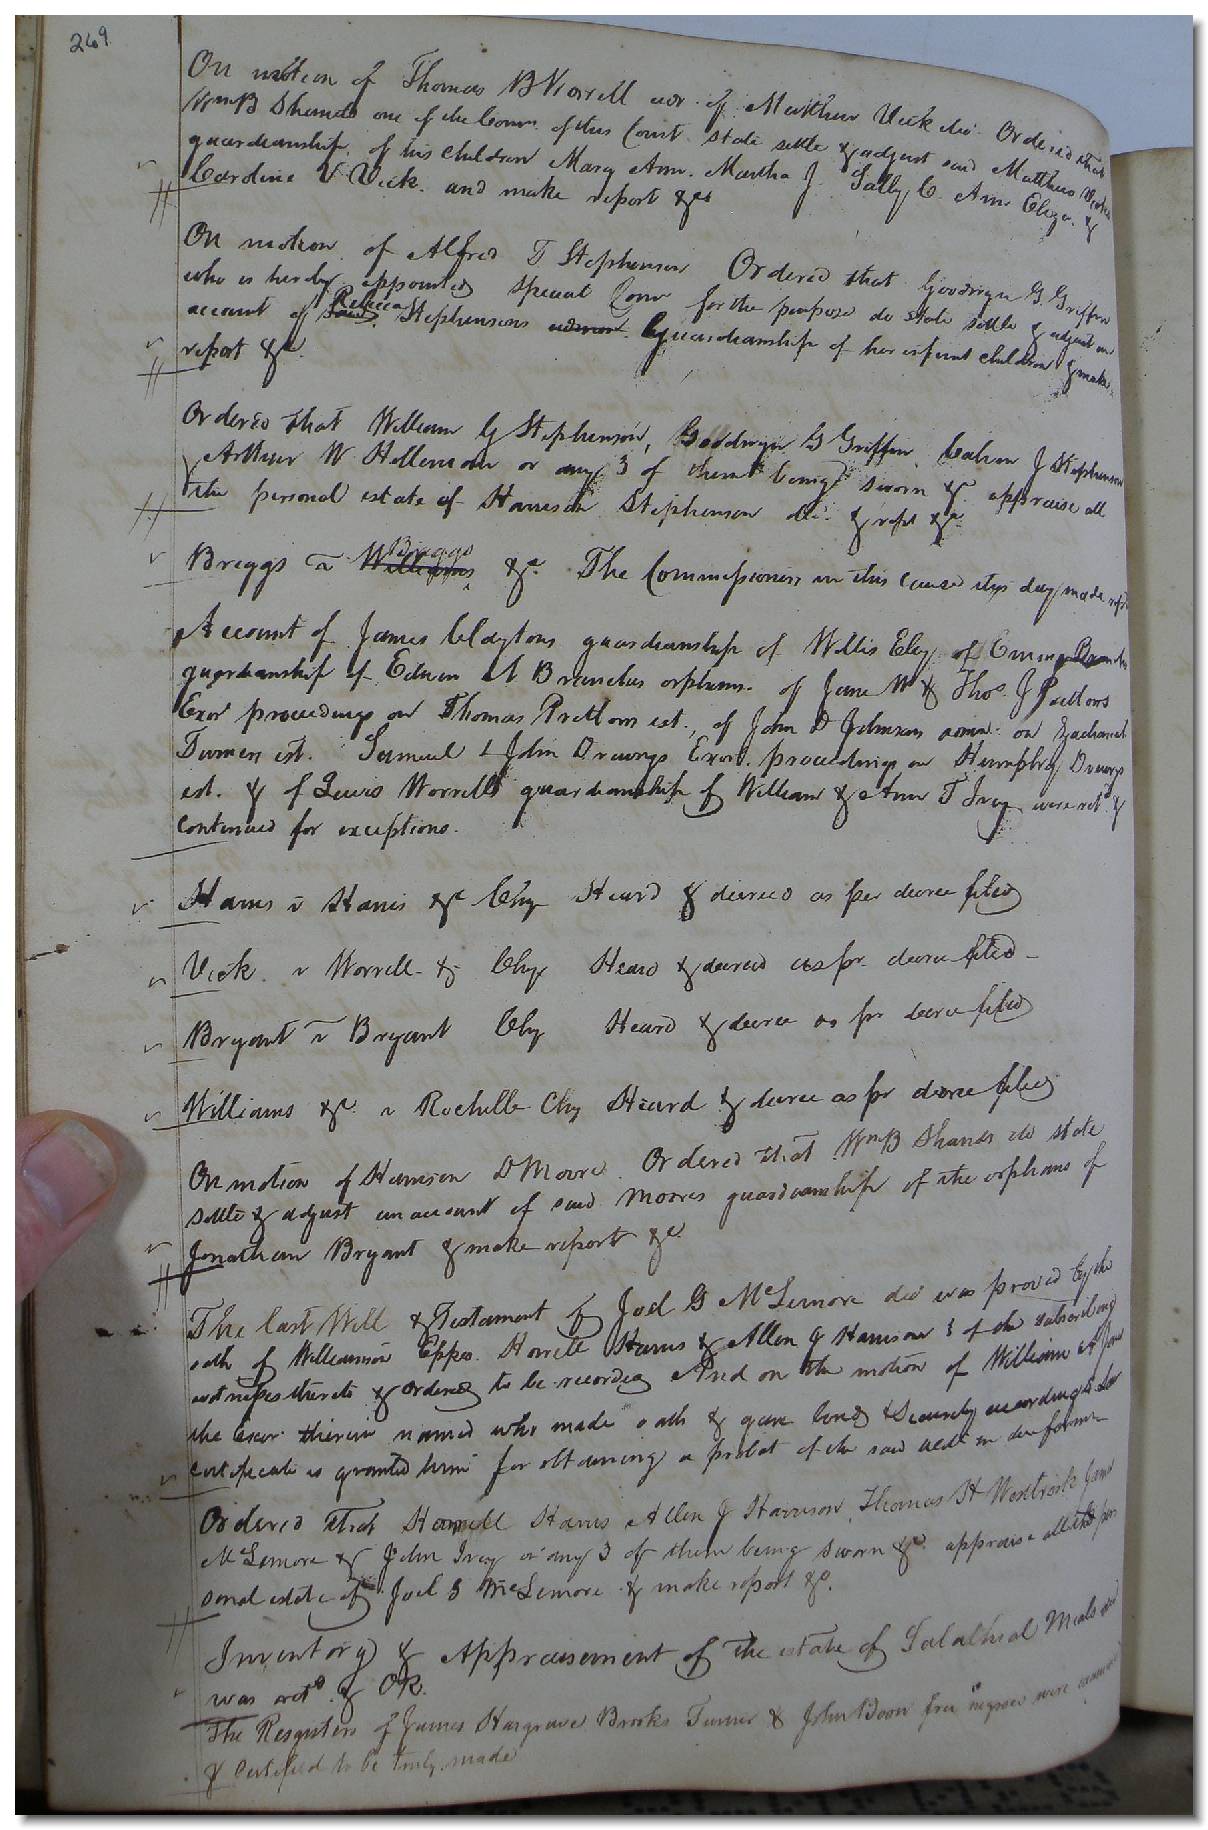 269
On motion of Thomas B Worrell adr. of Matthew Vick dec. Ordered that
Wm B Shands one of the Comrs. of this Court state settle & adjust said Matthew Vicks
guardianship of his children Mary Ann. Martha J. Sally C. Ann Eliza. &
Caroline V Vick. and make report &c
On motion of Alfred T Stephenson Ordered that Goodwyn G Griffin
who is hereby appointed special Comr for the purpose do state settle & adjust an
account of Rebecca Stephensons guardianship of her infant children & make
report &c.
Ordered that William G Stephenson, Goodwyn G Griffin Calvin J Stephenson
& Arthur W Holleman or any 3 of them being sworn &c appraise all
the personal estate of Harrison Stephenson dec. & rept &c
Briggs v Briggs &c. The Commissioners in this cause this day made rept
Account of James Claytons guardianship of Willis Eley of
guardianship of Edwin Branches orphans. of Jane W & Thos. J Pretlows
Exor proceedings on Thomas Pretlows est., of John D Johnson admr. on Zachariah
Turners est. Samuel & John Drewrys Exors. proceedings on Humphry Drewrys
est. & of Lewis Worrells guardianship of William & Ann T Ivey were retd &
continued for exceptions.
Harris v Harris &c Chy Heard & decreed as per decree filed
Vick v Worrell &c Chy Heard & decreed as pr decree filed
Bryant v Bryant Chy Heard & decree as pr decree filed
Williams &c. v Rochelle Chy Heard & decree as pr decree filed
On motion of Harrison D Moore. Ordered that Wm B Shands do state
settle & adjust an account of said Moores guardianship of the orphans of
Jonathan Bryant & make report &c
The last Will & Testament of Joel G McLemore dec was proved by the
oath of Williamson Eppes. Howell Harris & Allen J Harrison 3 of the subscribing
witnesses thereto & ordered to be recorded And on the motion of William
the exor therein named who made oath & gave bond & security according to law
certificate is granted him for obtaining a probat of the said will in due form
Ordered that Howell Harris Allen J Harrison, Thomas H Westbrook
McLemore & John Ivey or any 3 of them being sworn &c appraise all the per
sonal estate of Joel G McLemore & make report &c.
Inventory & Appraisement of the estate of Salathial Meals
was retd & OR.
The Registers of James Hargrave Brooks Turner & John Boon free negroes were examined
& certified to be truly made